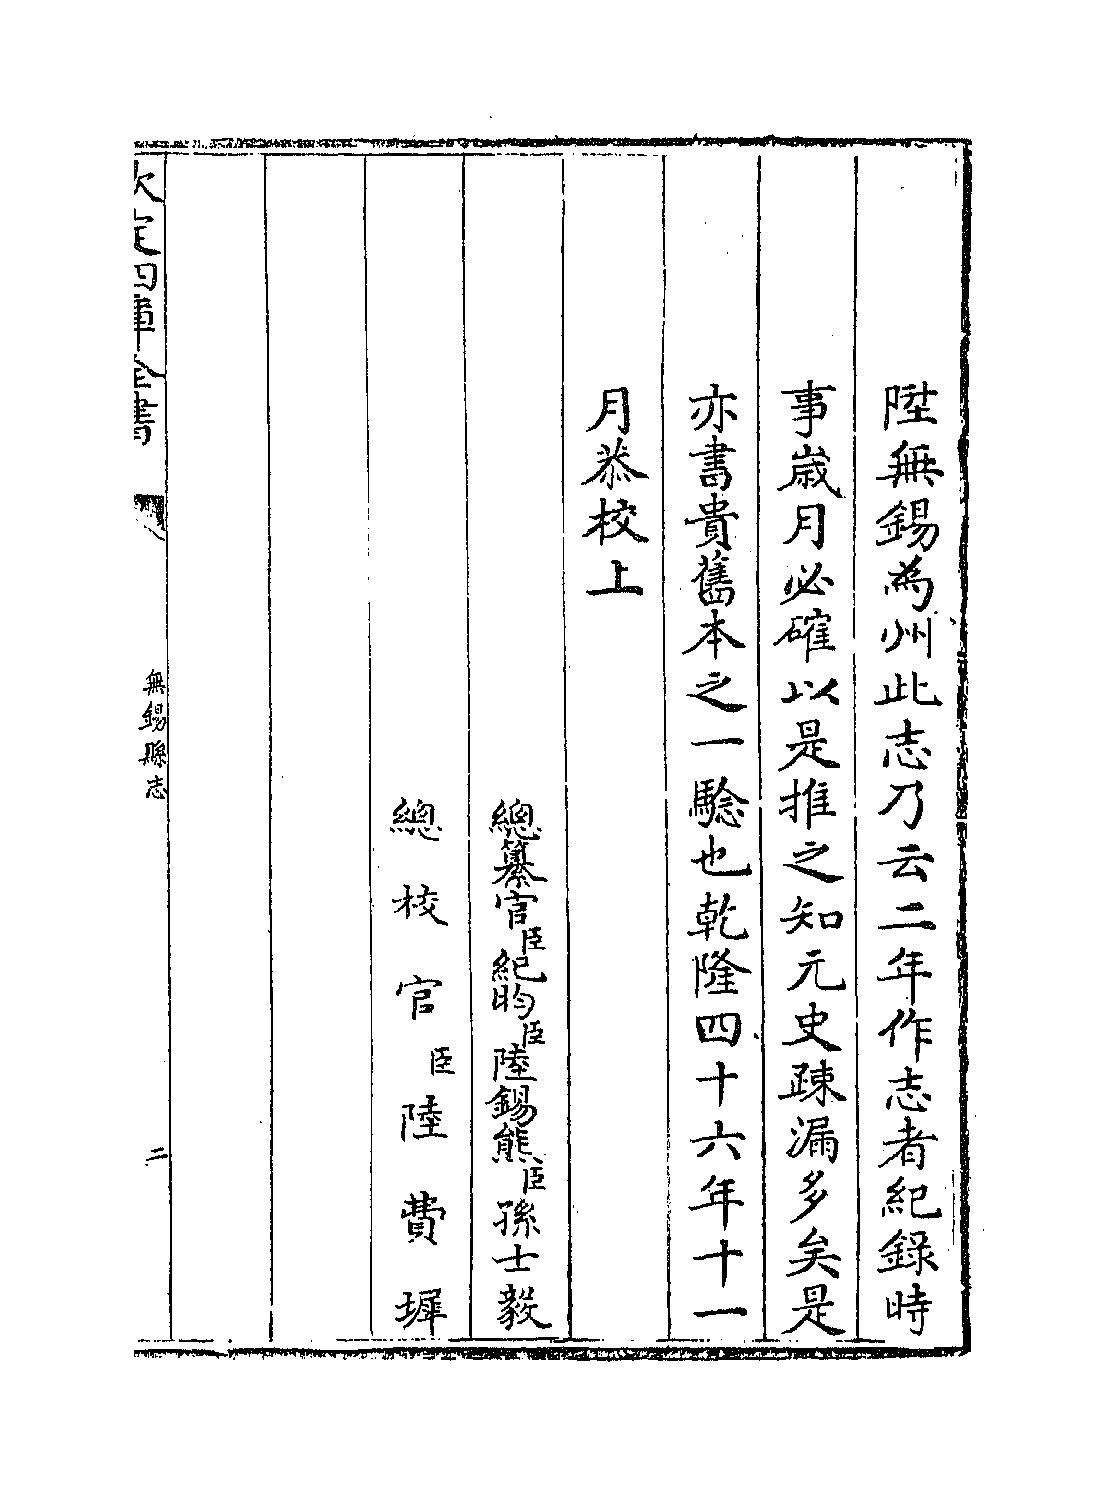 陞無錫為州此志乃云二年作志者紀録時
事歳月必確以是推之知元史疎漏多矣是
亦書貴舊本之一騐也乾隆四十六年十一
月恭校上
總纂官臣紀昀臣陸錫熊臣孫士毅
總校官臣陸費墀
欽定四庫全書
無錫縣志
二